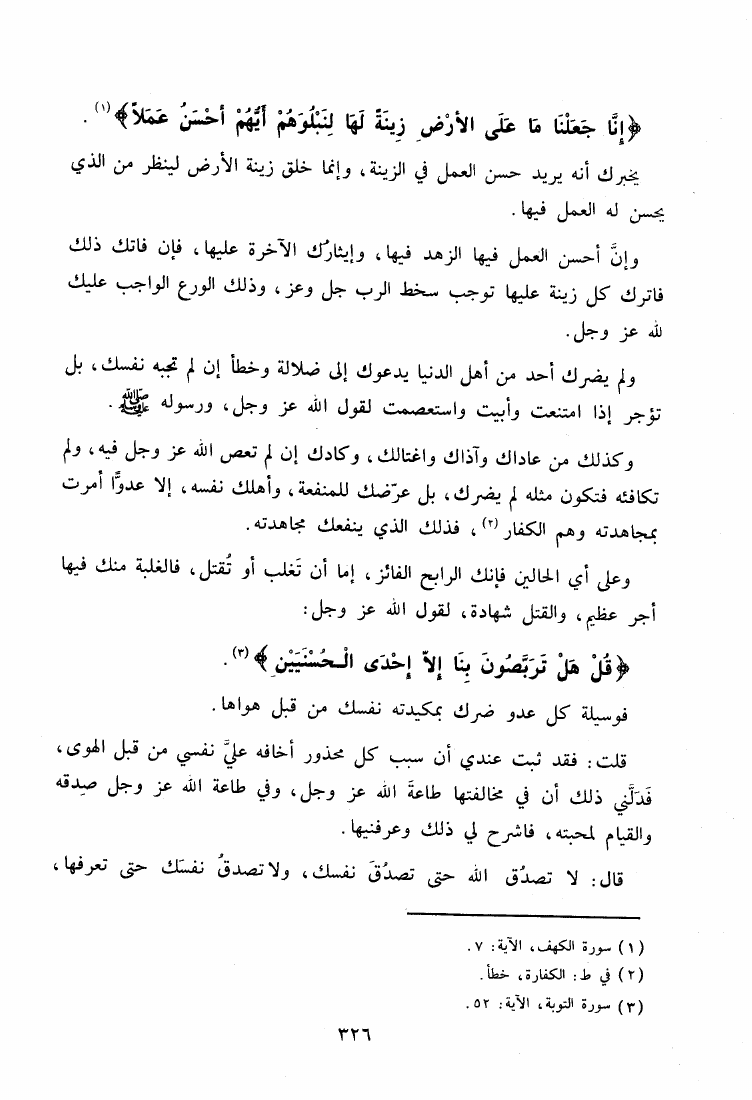 ﴿إِنَّا جَعَلْنَا مَا عَلَى الأرْضِ زِينَةً لَهَا لِنَبْلُوَهُمْ أَيُّهُمْ أحْسَنُ عَمَلاً﴾(١).
يخبرك أنه يريد حسن العمل في الزينة، وإنما خلق زينة الأرض لينظر من الذي
يحسن له العمل فيها.
وإنَّ أحسن العمل فيها الزهد فيها، وإيثارُك الآخرة عليها، فإن فاتك ذلك
فاترك كل زينة عليها توجب سخط الرب جل وعز، وذلك الورع الواجب عليك
لله عز وجل.
ولم يضرك أحد من أهل الدنيا يدعوك إلى ضلالة وخطأ إن لم تجبه نفسك، بل
تؤجر إذا امتنعت وأبيت واستعصمت لقول الله عز وجل، ورسوله ﷺ.
وكذلك من عاداك وآذاك واغتالك، وكادك إن لم تعص الله عز وجل فيه، ولم
تكافئه فتكون مثله لم يضرك، بل عرّضك للمنفعة، وأهلك نفسه، إلا عدوًّا أمرت
بمجاهدته وهم الكفار(٢)، فذلك الذي ينفعك مجاهدته.
وعلى أي الحالين فإنك الرابح الفائز، إما أن تَغلب أو تُقتل، فالغلبة منك فيها
أجر عظيم، والقتل شهادة، لقول الله عز وجل:
﴿قُلْ هَلْ تَرَبَّصُونَ بِنَا إلاّ إحْدَى الْحُسْنَيَيْنِ﴾(٣).
فوسيلة كل عدو ضرك بمكيدته نفسك من قبل هواها.
قلت: فقد ثبت عندي أن سبب كل محذور أخافه عليَّ نفسي من قبل الهوى،
فَدَلَّني ذلك أن في مخالفتها طاعةَ الله عز وجل، وفي طاعة الله عز وجل صِدقه
والقيام لمحبته، فاشرح لي ذلك وعرفنيها.
قال: لا تصدُق الله حتى تصدُقَ نفسك، ولا تصدقُ نفسَك حتى تعرفها،
(١) سورة الكهف، الآية: ٧.
(٢) في ط: الكفارة، خطأ.
(٣) سورة التوبة، الآية: ٥٢.
٣٢٦